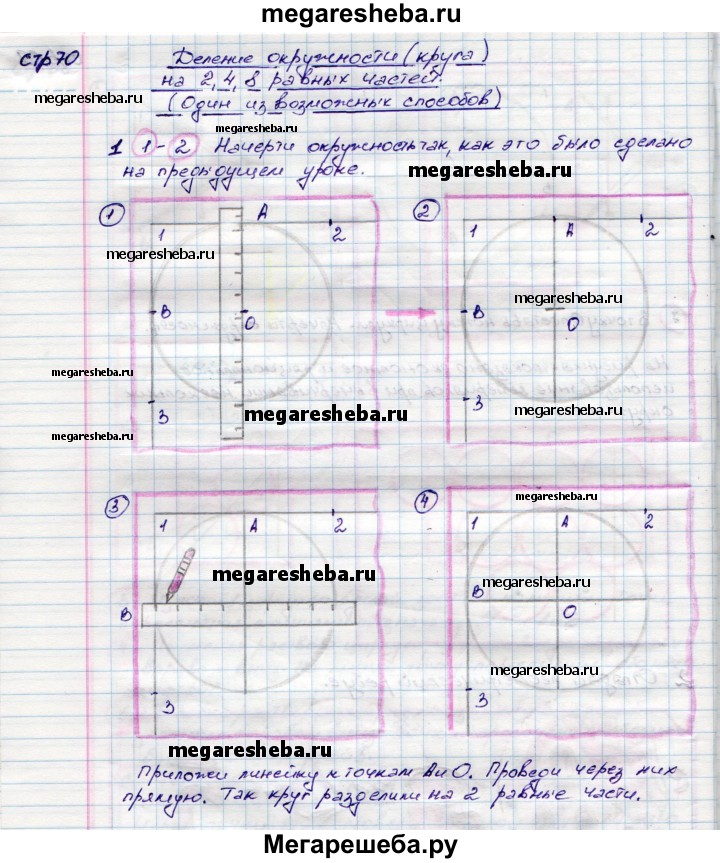 megaresheba.ru
стр 70
Деление окружности (круга)
на 2, 4, 8 равных частей.
(Один из возможных способов)
megaresheba.ru
megaresheba.ru
1 1-2 Начерти окружность так, как это было сделано
на предыдущем уроке.
megaresheba.ru
1
A
1
2
B
O
3
megaresheba.ru
megaresheba.ru
megaresheba.ru
megaresheba.ru
2
1
A
2
B
O
3
megaresheba.ru
megaresheba.ru
3
1
A
2
B
3
megaresheba.ru
4
1
A
2
B
O
3
megaresheba.ru
megaresheba.ru
megaresheba.ru
megaresheba.ru
Приложи линейку к точкам A и O. Проведи через них
прямую. Так круг разделили на 2 равные части.
Мегарешеба.ру